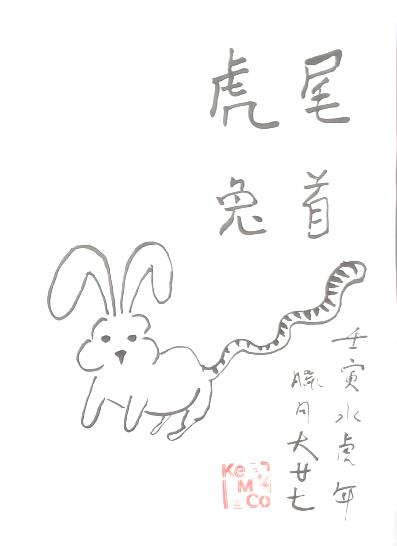 虎尾
兔首
壬寅水虎年
臘月大廿七
Ke
M
Co